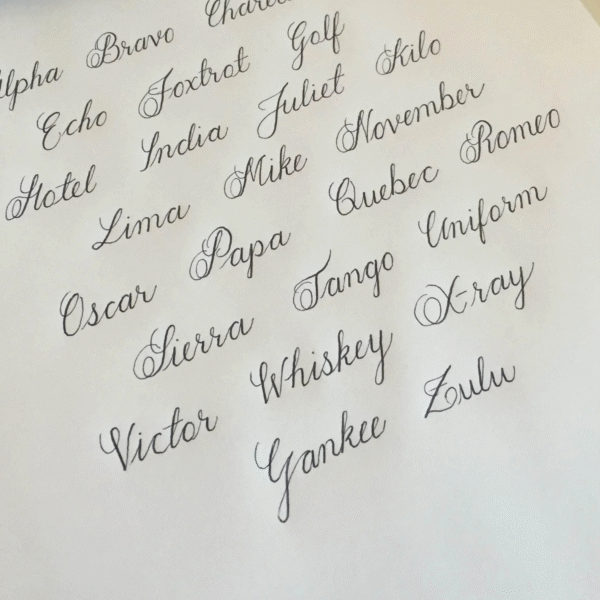 Alpha Bravo
Echo Foxtrot Golf
Hotel India Juliet Kilo
Lima Mike November
Oscar Papa Quebec Romeo
Sierra Tango Uniform
Victor Whiskey X-ray
Yankee Zulu